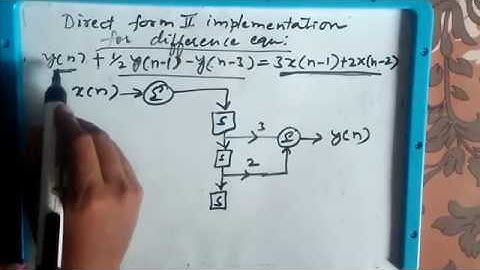 Direct form II implementation
for difference equ:
y(n) + 1/2 y(n-1) - y(n-3) = 3x(n-1) + 2x(n-2)
x(n) Σ
S
3 Σ y(n)
S
2
S